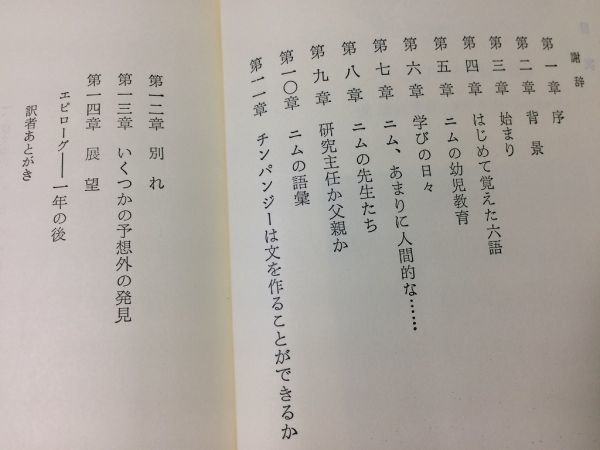 謝辞
第一章 序
第二章 背景
第三章 始まり
第四章 はじめて覚えた六語
第五章 ニムの幼児教育
第六章 学びの日々
第七章 ニム、あまりに人間的な……
第八章 ニムの先生たち
第九章 研究主任か父親か
第一〇章 ニムの語彙
第一一章 チンパンジーは文を作ることができるか
第一二章 別れ
第一三章 いくつかの予想外の発見
第一四章 展望
エピローグ――一年の後
訳者あとがき